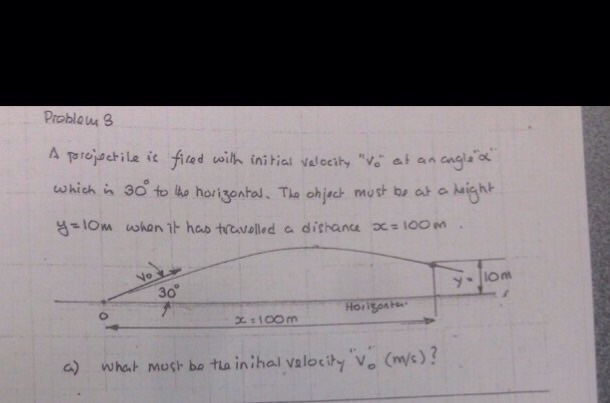 Problem 3
A projectile is fired with initial velocity "V₀" at an angle "α"
which is 30° to the horizontal. The object must be at a height
y=10m when it has travelled a distance x=100m.
V₀
30°
y=
10m
Horizontal
0
x=100m
a) what must be the initial velocity "V₀" (m/s)?